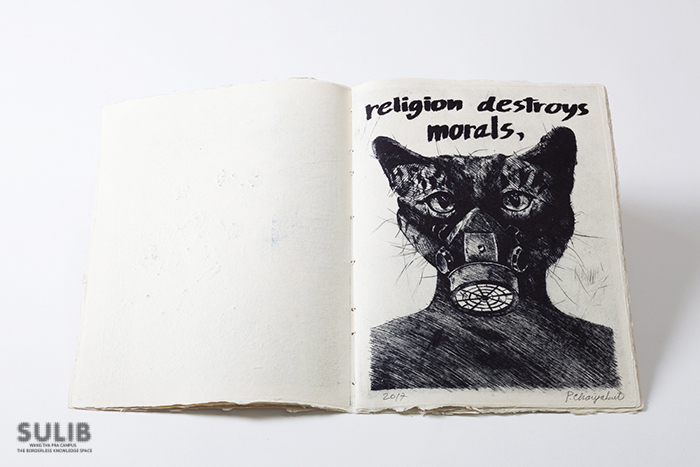 religion destroys
morals,
2017
SULIB
WANG THA PRA CAMPUS
THE BORDERLESS KNOWLEDGE SPACE